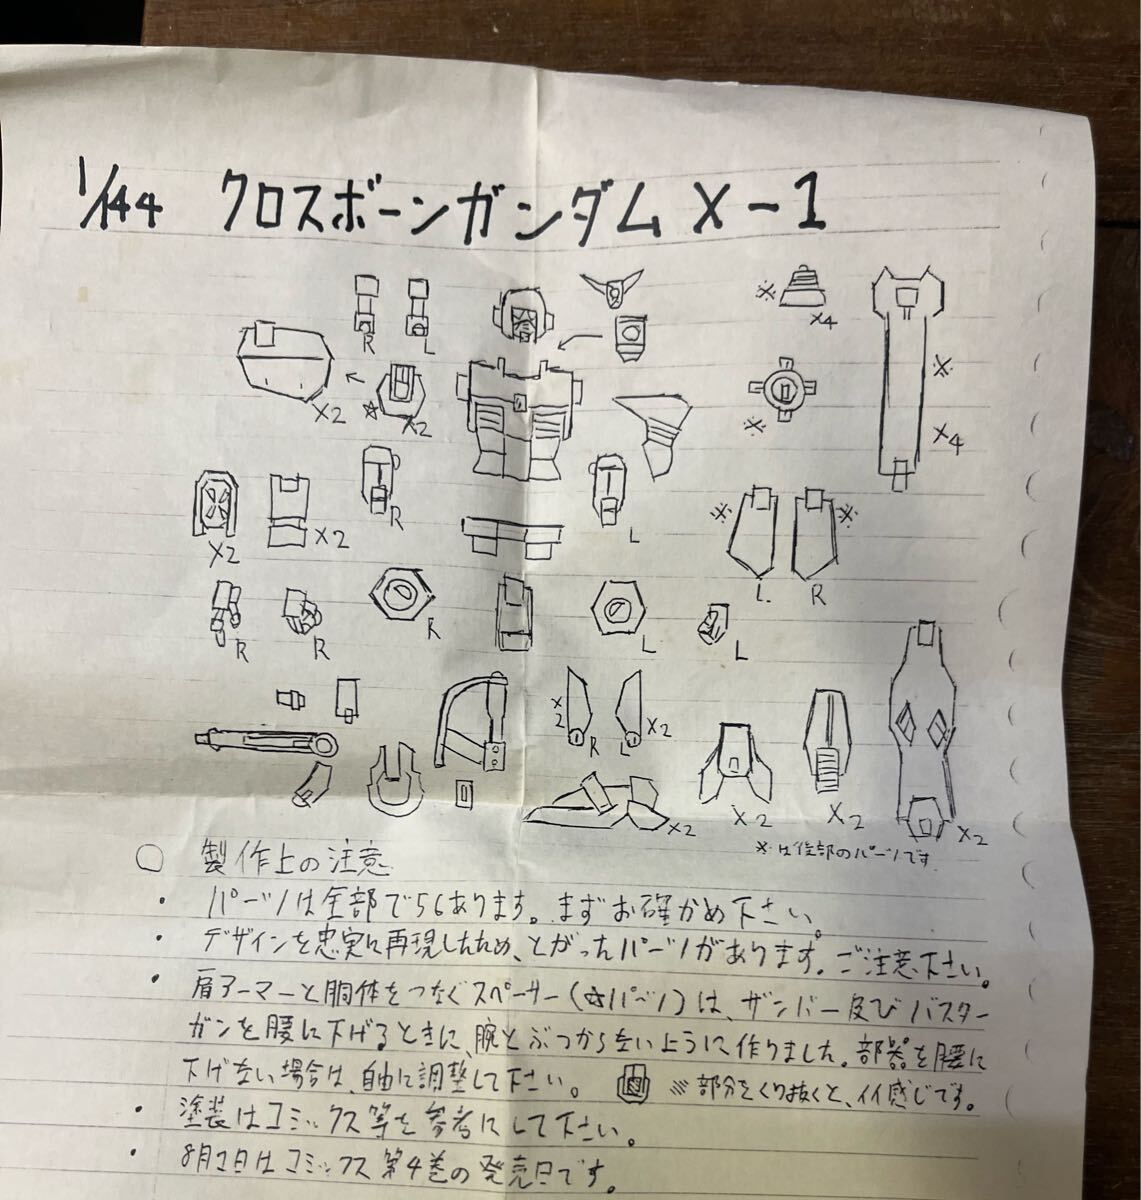 1/144 クロスボーンガンダム X-1
※
X4
R
L
X2
☆
X2
※
※
X4
R
L
※
※
X2
X2
L.
R
R
R
R
L
L
X2
R
L
X2
X2
X2
X2
X2
※は後部のパーツです
○ 製作上の注意
・ パーツは全部で56あります。まずお確かめ下さい。
・ デザインを忠実に再現したため、とがったパーツがあります。ご注意下さい。
・ 肩アーマーと胴体をつなぐスペーサー(☆パーツ)は、ザンバー及びバスター
ガンを腰に下げるときに、腕とぶつからないように作りました。部器を腰に
下げない場合は、自由に調整して下さい。 部分をくり抜くと、イイ感じです。
・ 塗装はコミックス等を参考にして下さい。
・ 8月2日はコミックス第4巻の発売日です。